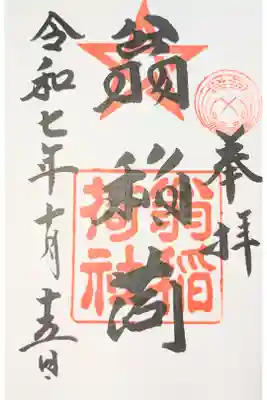 奉拝
翁稲荷
翁稲
荷社
令和七年十月十五日